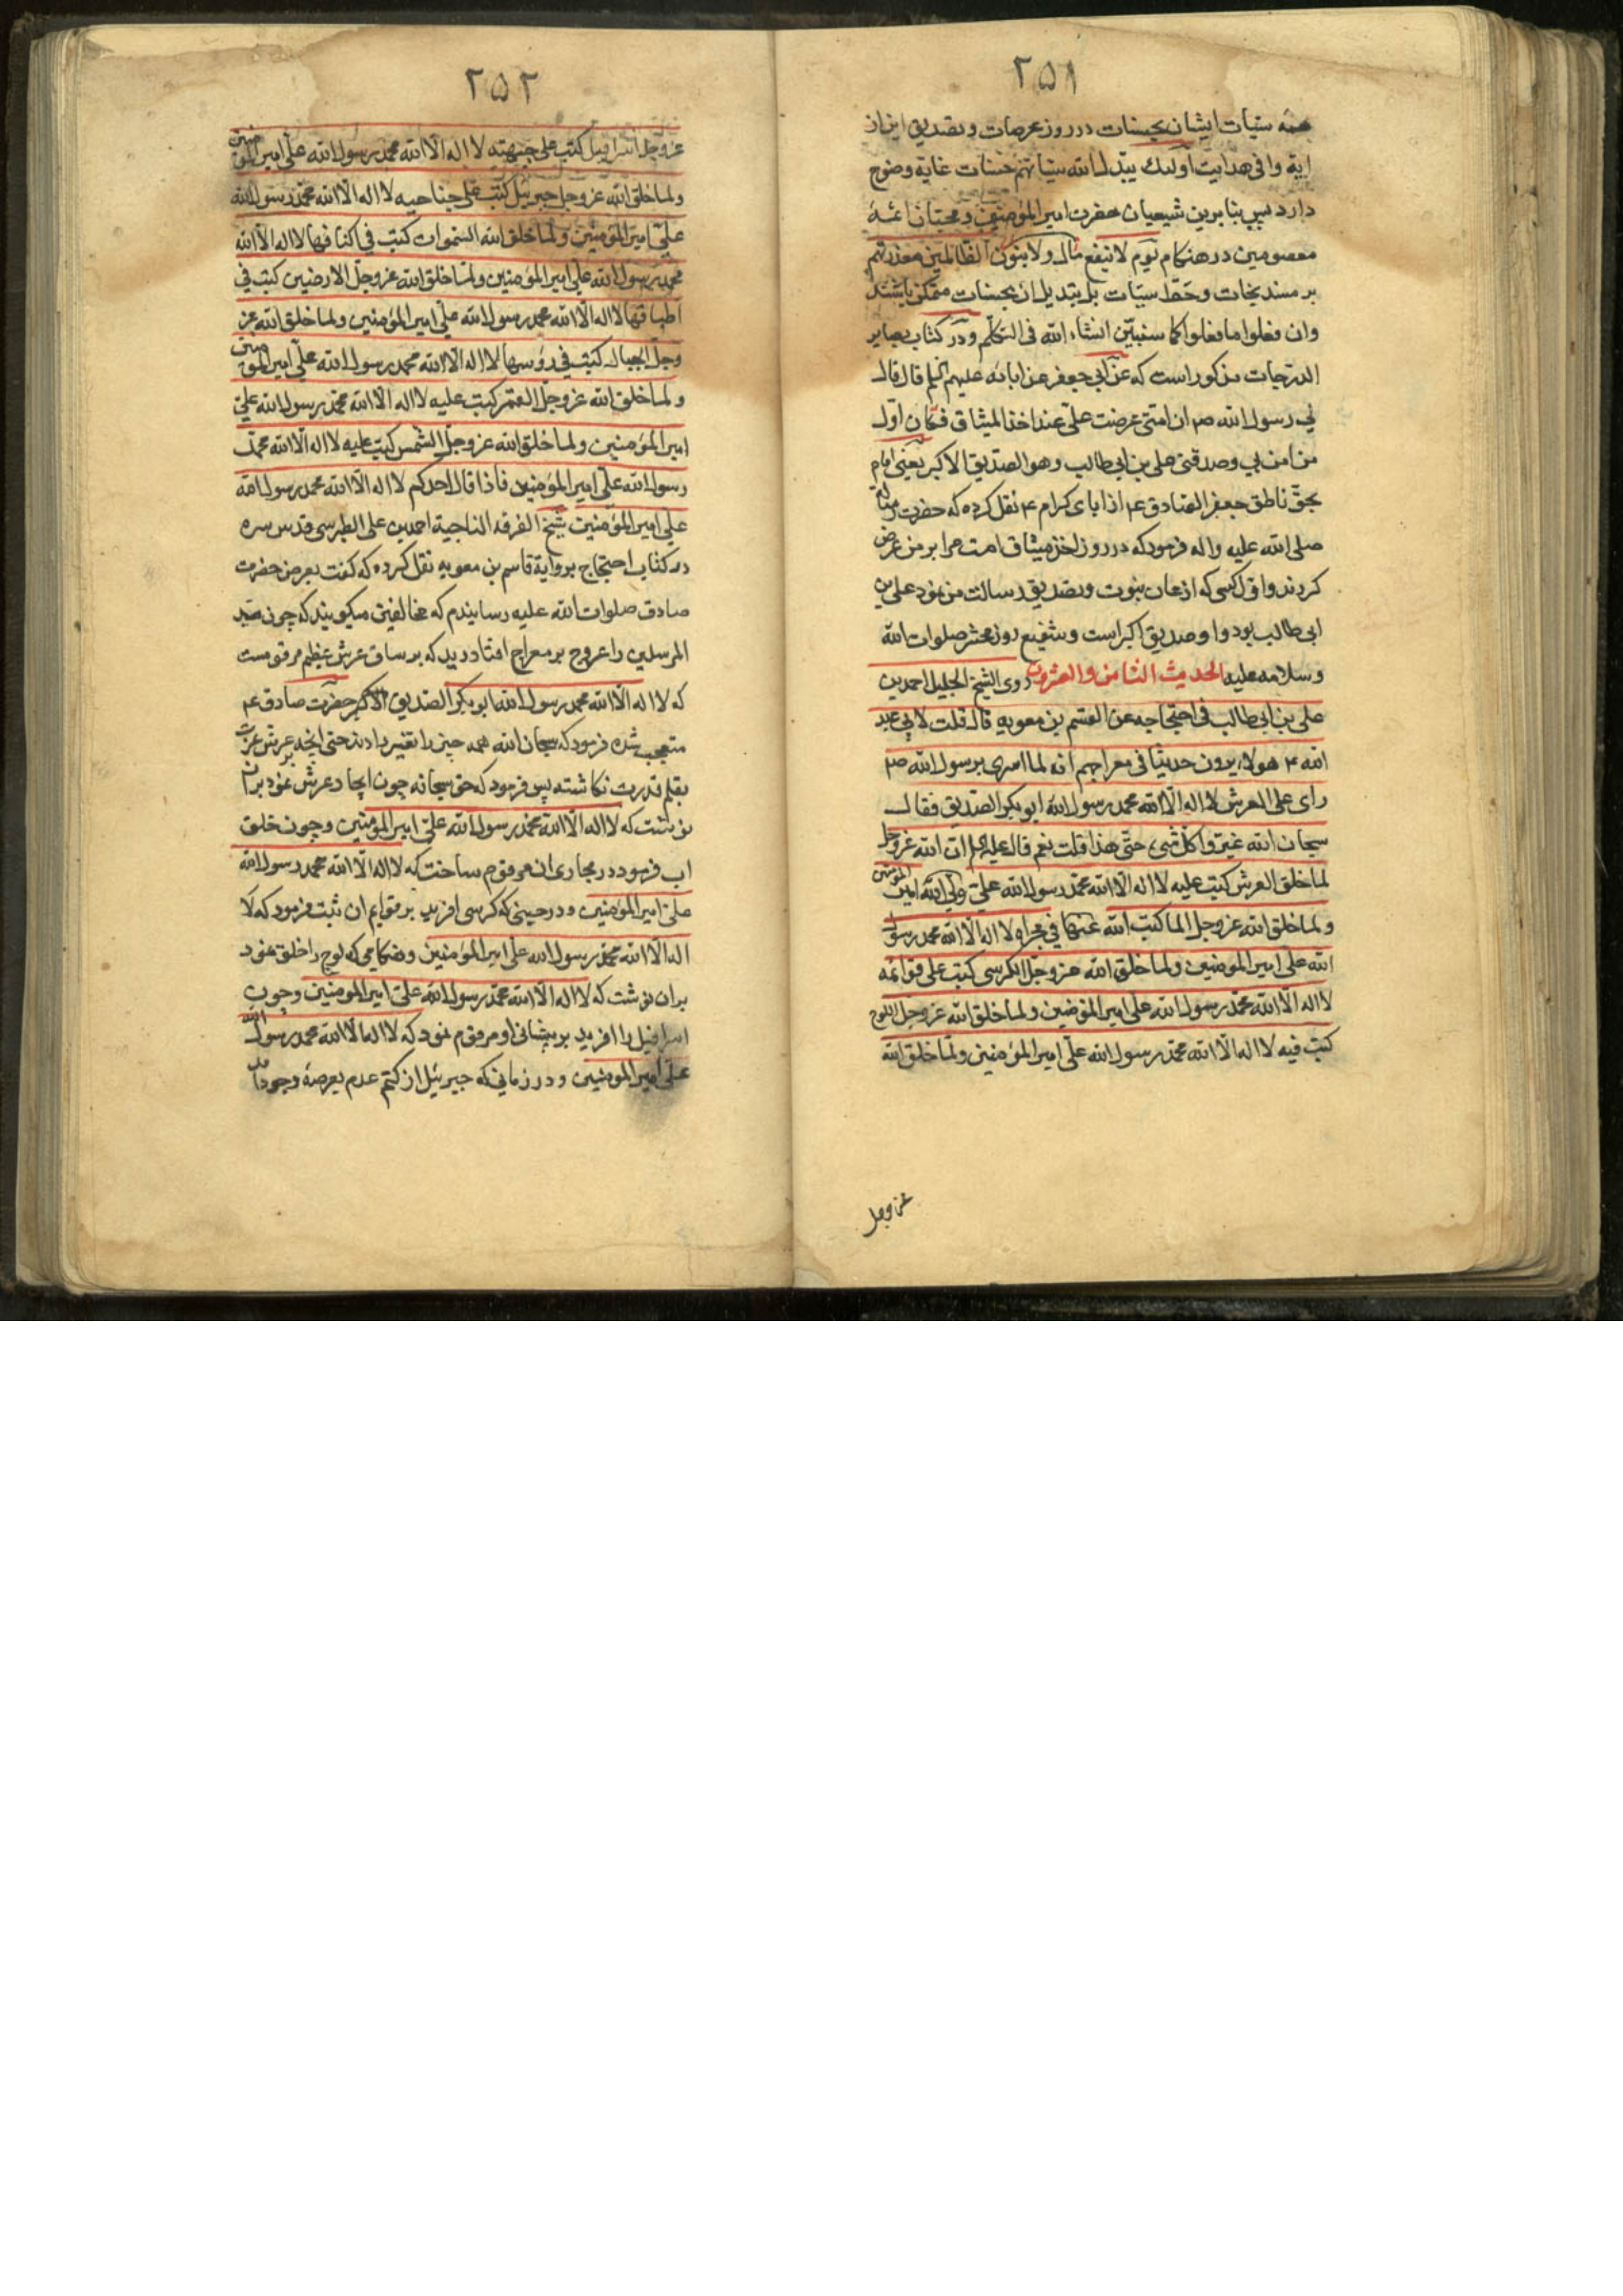 ۲۵۱
همه سیئات ایشان بحسنات در روز عرصات و تصدیق این از
ایه وافی هدایت اولئک یبدل الله سیئاتهم حسنات غایة وضوح
دارد پس بنابرین شیعیان حضرت امیر المؤمنین و محبان ائمهٔ
معصومین در هنکام یوم لا ینفع مال ولا بنون الظالمین معذرتهم
بر مسند نجات و حط سیئات بل بتبدیل ان بحسنات متمکن باشند
وان فعلوا ما فعلوا کما سنبین انشاء الله فی التکلم و در کتاب بصایر
الدرجات مذکور است که عن ابی جعفر عن ابائه علیهم السلم قال قال
لی رسول الله ص ان امتی عرضت علی عند اخذ المیثاق فکان اول
من امن بی وصدقنی علی بن ابی طالب وهو الصدیق الاکبر یعنی امام
بحق ناطق جعفر الصادق ع از ابای کرام ع نقل کرده که حضرت رسالت
صلی الله علیه واله فرمود که در روز اخذ میثاق امت مرا بر من عرض
کردند و اول کسی که اذعان بنبوت و تصدیق رسالت من نمود علی بن
ابی طالب بود و او صدیق اکبر است و شفیع روز محشر صلوات الله
وسلامه علیه الحدیث الثامن والعشرون روی الشیخ الجلیل احمد بن
علی بن ابی طالب فی احتجاجه عن القسم بن معویه قال قلت لابی عبد
الله ع هولاء یروون حدیثا فی معراجهم انه لما اسری برسول الله ص
رای علی العرش لا اله الا الله محمد رسول الله ابو بکر الصدیق فقال
سبحان الله غیروا کل شیء حتی هذا قلت نعم قال علیه السلم ان الله عز وجل
لما خلق العرش کتب علیه لا اله الا الله محمد رسول الله علی ولی الله امیر المؤمنین
ولما خلق الله عز وجل الماء کتب الله فی مجراه لا اله الا الله محمد رسول
الله علی امیر المومنین ولما خلق الله عز وجل الکرسی کتب علی قوائمه
لا اله الا الله محمد رسول الله علی امیر المؤمنین ولما خلق الله عز وجل اللوح
کتب فیه لا اله الا الله محمد رسول الله علی امیر المؤمنین ولما خلق الله
عز وجل
۲۵۲
عز وجل اسرافیل کتب علی جبهته لا اله الا الله محمد رسول الله علی امیر المؤمنین
ولما خلق الله عز وجل جبرئیل کتب علی جناحیه لا اله الا الله محمد رسول الله
علی امیر المؤمنین ولما خلق الله السموات کتب فی اکنافها لا اله الا الله
محمد رسول الله علی امیر المؤمنین ولما خلق الله عز وجل الارضین کتب فی
اطباقها لا اله الا الله محمد رسول الله علی امیر المؤمنین ولما خلق الله عز
وجل الجبال کتب فی رؤسها لا اله الا الله محمد رسول الله علی امیر المؤمنین
ولما خلق الله عز وجل القمر کتب علیه لا اله الا الله محمد رسول الله علی
امیر المؤمنین ولما خلق الله عز وجل الشمس کتب علیه لا اله الا الله محمد
رسول الله علی امیر المؤمنین فاذا قال احدکم لا اله الا الله محمد رسول الله
علی امیر المؤمنین شیخ الفرقه الناجیة احمد بن علی الطبرسی قدس سره
در کتاب احتجاج بروایة قاسم بن معویه نقل کرده که کفت بعرض حضرت
صادق صلوات الله علیه رسانیدم که مخالفین میکویند که چون سید
المرسلین را عروج بر معراج افتاد دید که بر ساق عرش عظیم مرقومست
که لا اله الا الله محمد رسول الله ابو بکر الصدیق الاکبر حضرت صادق ع
متعجب شده فرمود که سبحان الله همه چیز را تغییر دادند حتی انچه بر عرش عزت
بقلم قدرت نکاشته پس فرمود که حق سبحانه چون ایجاد عرش نمود بران
نوشت که لا اله الا الله محمد رسول الله علی امیر المومنین و چون خلق
اب فرمود در مجاری ان مرقوم ساخت که لا اله الا الله محمد رسول الله
علی امیر المؤمنین و در حینی که کرسی افرید بر قوایم ان ثبت فرمود که لا
اله الا الله محمد رسول الله علی امیر المؤمنین و هنکامی که لوح را خلق نمود
بران نوشت که لا اله الا الله محمد رسول الله علی امیر المومنین و چون
اسرافیل را افرید بر پیشانی او مرقوم نمود که لا اله الا الله محمد رسول الله
علی امیر المومنین و در زمانی که جبرئیل از کتم عدم بعرصهٔ وجود امد